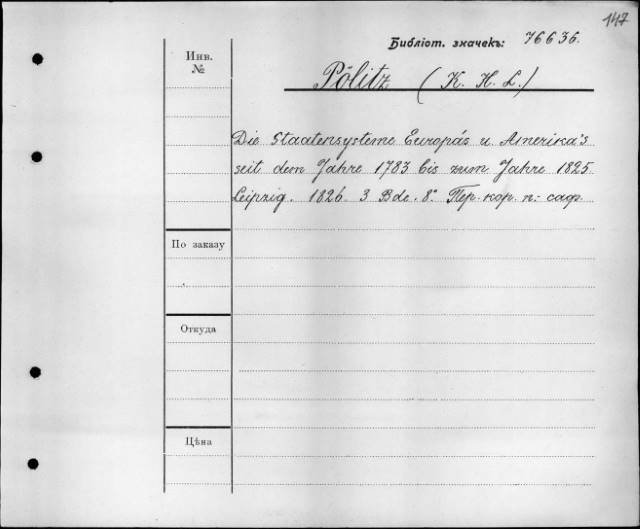 147
Библіот. значекъ: 76636.
Инв.
№
Pölitz (K. H. L.)
Die Staatensysteme Europás u. Amerika's
seit dem Jahre 1783 bis zum Jahre 1825.
Leipzig. 1826. 3 Bde. 8º. Пер. кор. п.- саф.
По заказу
Откуда
Цѣна